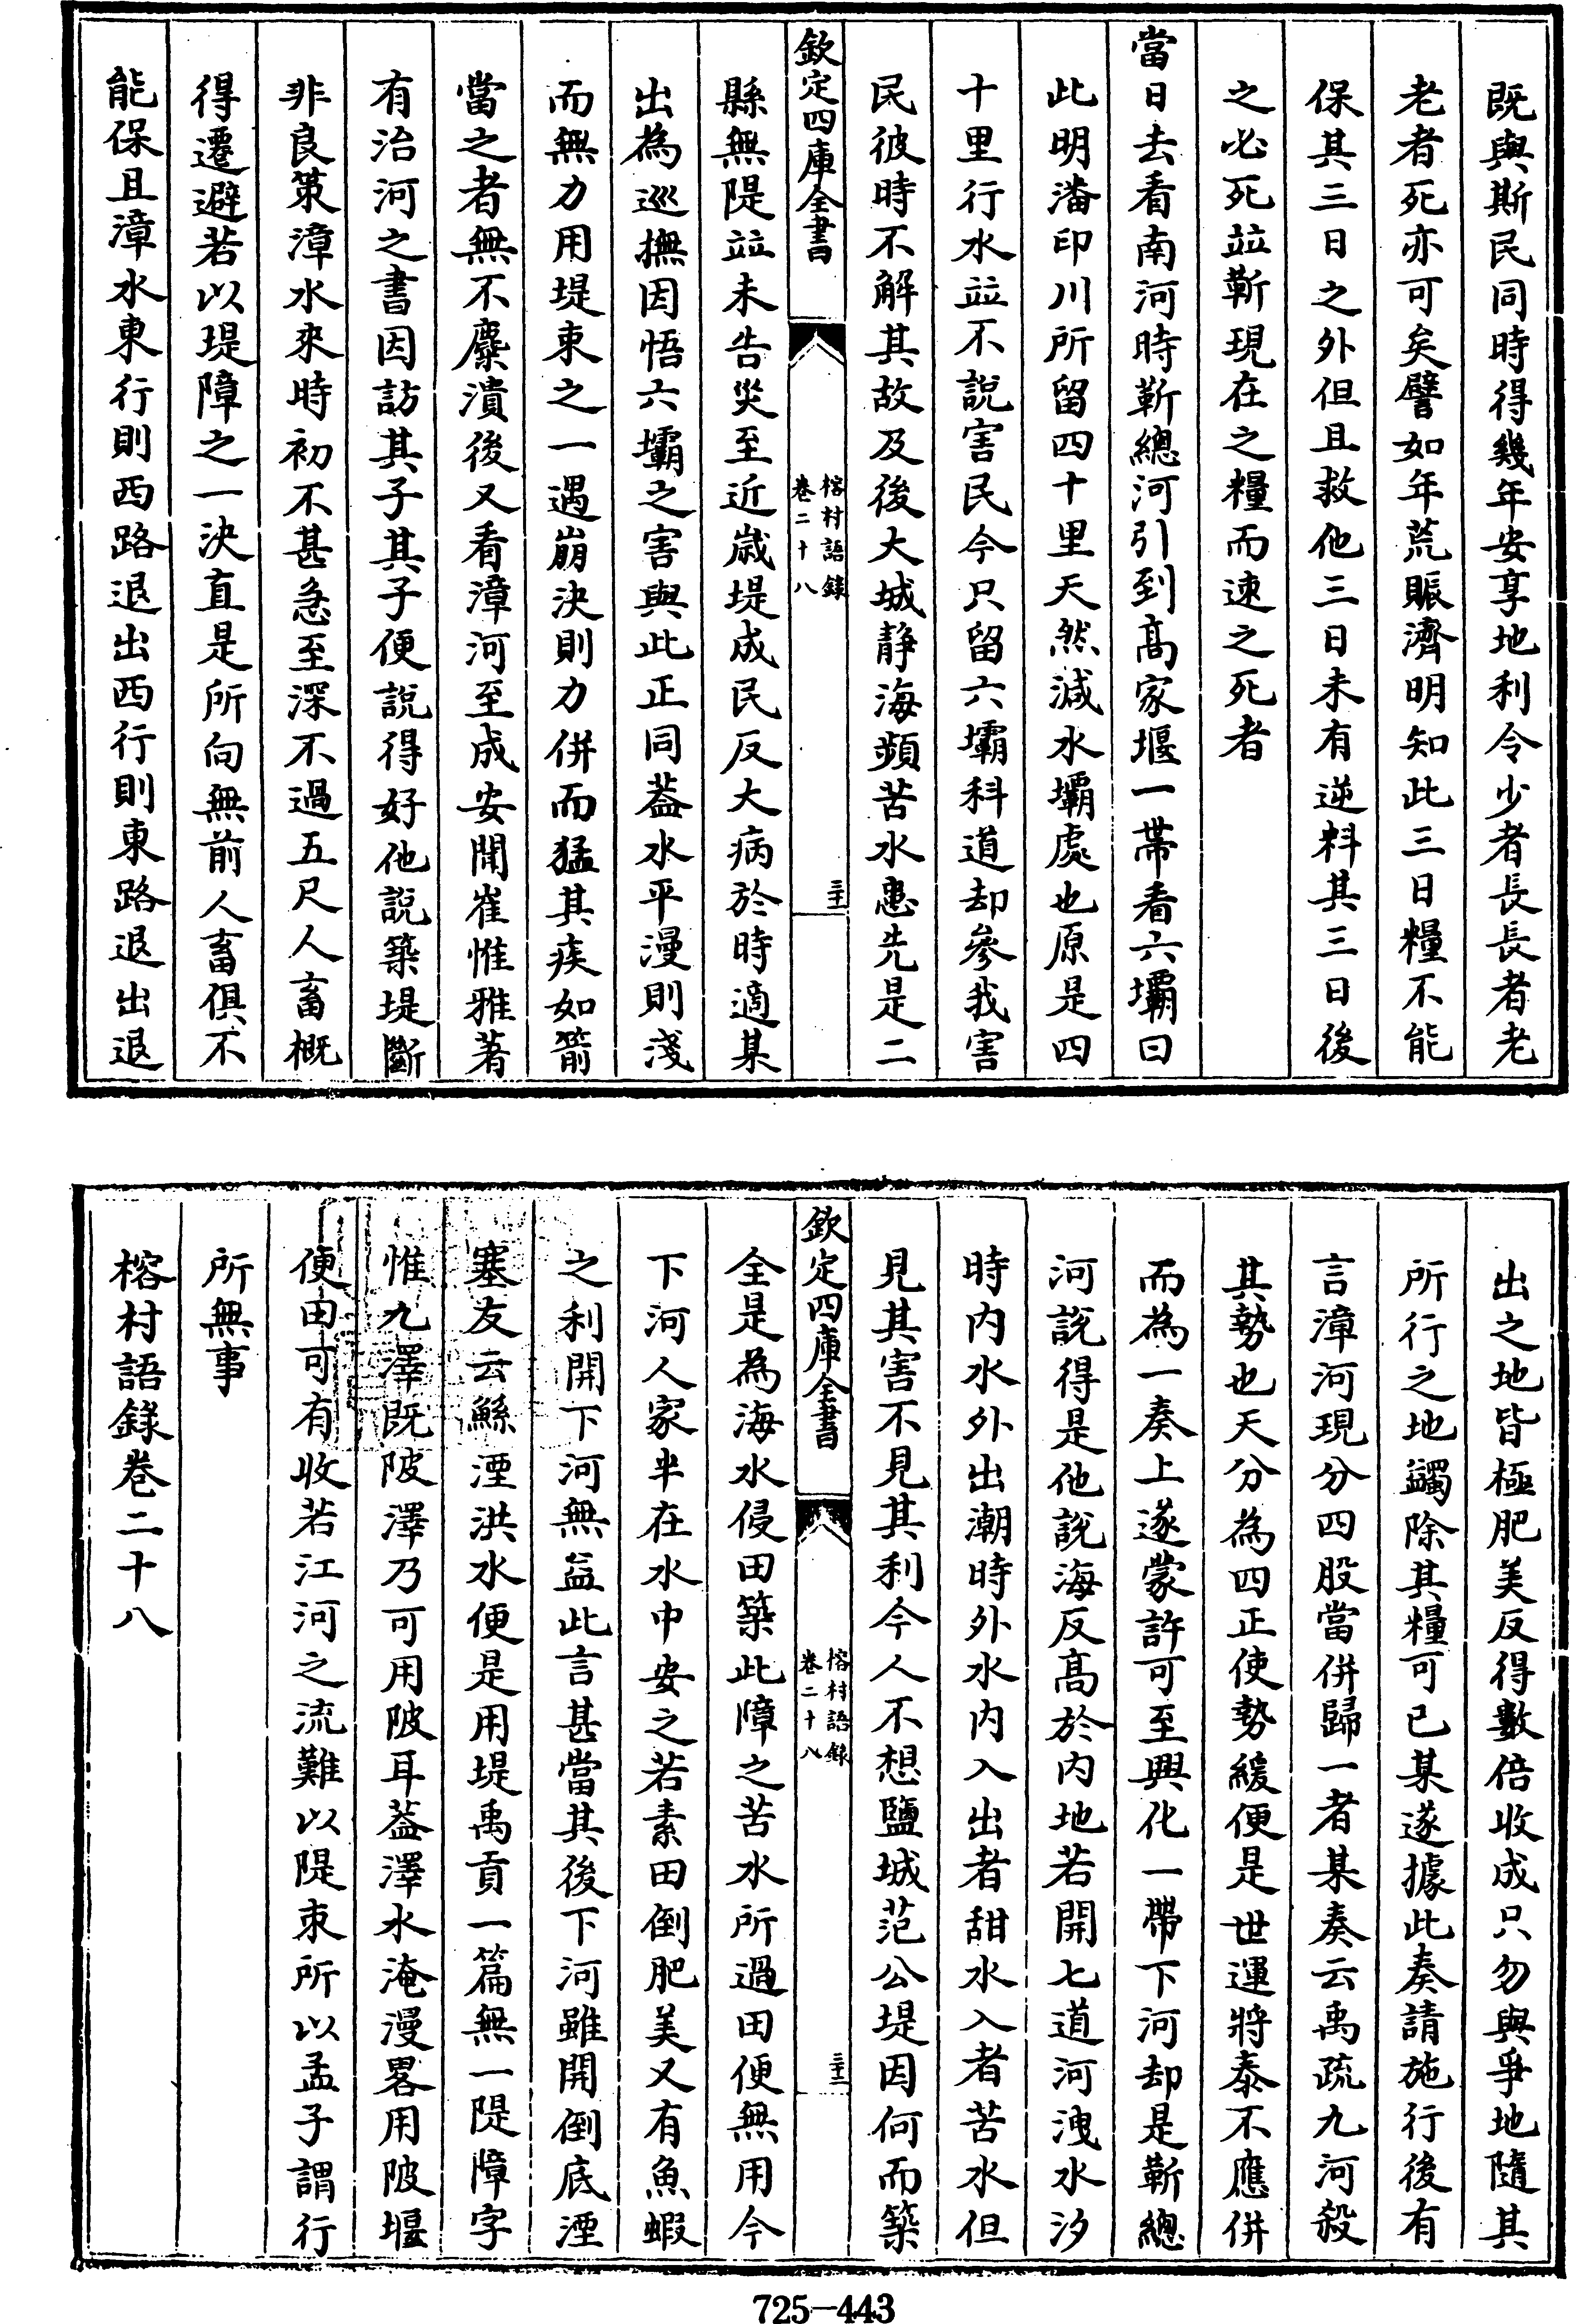 既與斯民同時得幾年安享地利令少者長長者老
老者死亦可矣譬如年荒賑濟明知此三日糧不能
保其三日之外但且救他三日未有逆料其三日後
之必死竝靳現在之糧而速之死者
當日去看南河時靳總河引到髙家堰一帶看六壩曰
此明潘印川所留四十里天然減水壩處也原是四
十里行水竝不說害民今只留六壩科道却參我害
民彼時不解其故及後大城靜海頻苦水患先是二
欽定四庫全書
榕村語錄
卷二十八
三十一
縣無隄竝未告災至近歲堤成民反大病於時適某
出為巡撫因悟六壩之害與此正同葢水平漫則淺
而無力用堤束之一遇崩決則力併而猛其疾如箭
當之者無不糜潰後又看漳河至成安聞崔惟雅著
有治河之書因訪其子其子便說得好他說築堤斷
非良策漳水來時初不甚急至深不過五尺人畜概
得遷避若以堤障之一決直是所向無前人畜俱不
能保且漳水東行則西路退出西行則東路退出退
出之地皆極肥美反得數倍收成只勿與爭地隨其
所行之地蠲除其糧可已某遂據此奏請施行後有
言漳河現分四股當併歸一者某奏云禹疏九河殺
其勢也天分為四正使勢緩便是世運將泰不應併
而為一奏上遂蒙許可至興化一帶下河却是靳總
河說得是他說海反髙於內地若開七道河洩水汐
時內水外出潮時外水內入出者甜水入者苦水但
見其害不見其利今人不想鹽城范公堤因何而築
欽定四庫全書
榕村語錄
卷二十八
三十二
全是為海水侵田築此障之苦水所過田便無用今
下河人家半在水中安之若素田倒肥美又有魚蝦
之利開下河無益此言甚當其後下河雖開倒底湮
塞友云鯀湮洪水便是用堤禹貢一篇無一隄障字
惟九澤既陂澤乃可用陂耳葢澤水淹漫畧用陂堰
便田可有收若江河之流難以隄束所以孟子謂行
所無事
榕村語錄卷二十八
725-443